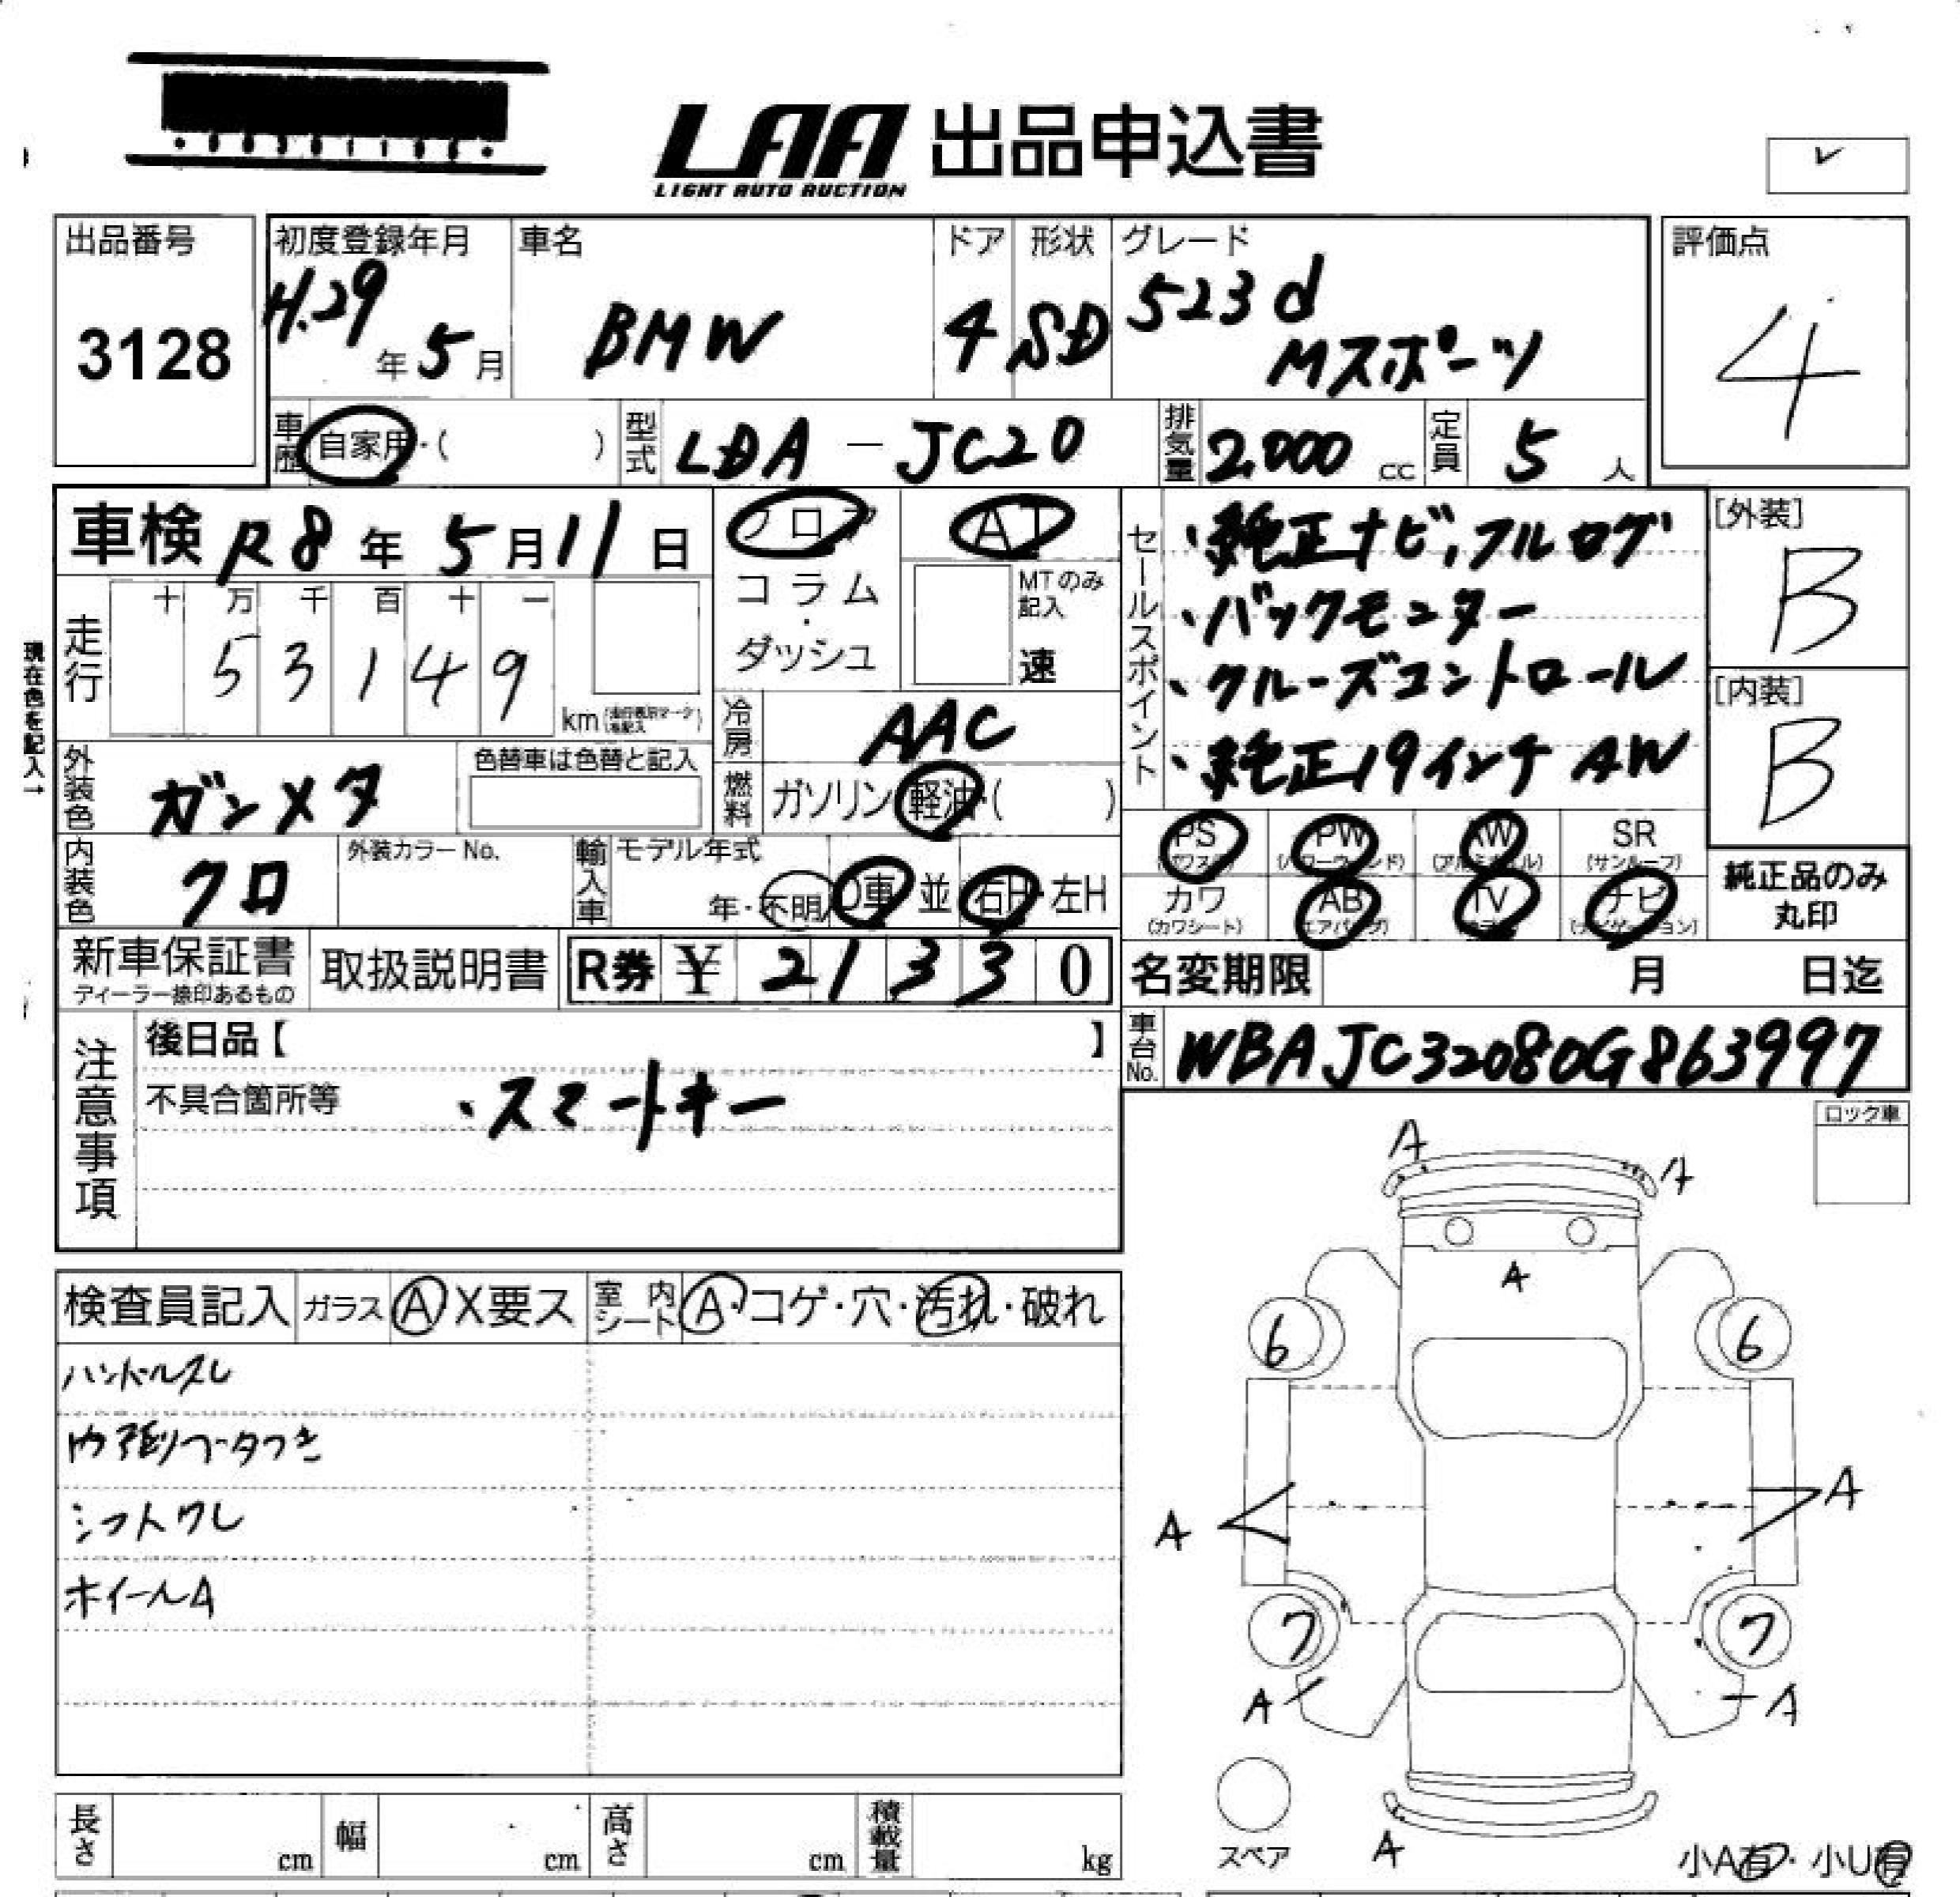 LAA 出品申込書
LIGHT AUTO AUCTION
出品番号
3128
初度登録年月
H.29年5月
車名
BMW
ドア
4
形状
SD
グレード
523d
Mスポーツ
評価点
4
車歴 自家用・( )
型式 LDA-JC20
排気量 2,000 cc
定員 5人
車検 R8年5月11日
フロア
コラム・
ダッシュ
AT
MTのみ
記入
速
走行
十 万 千 百 十 一
5 3 1 4 9
km
現在色を記入→
冷房 AAC
燃料 ガソリン 軽油・( )
外装色 ガンメタ
色替車は色替と記入
内装色 クロ
外装カラーNo.
輸入車
モデル年式
年・不明 D車 並 右H・左H
セールスポイント
・純正ナビ,フルログ
・バックモニター
・クルーズコントロール
・純正19インチAW
[外装]
B
[内装]
B
PS PW AW SR
(パワステ) (パワーウィンド) (アルミホイル) (サンルーフ)
カワ AB TV ナビ
(カワシート) (エアバッグ) (ナビゲーション)
純正品のみ
丸印
新車保証書
ディーラー捺印あるもの
取扱説明書
R券 ¥ 2 1 3 3 0
名変期限 月 日迄
車台No. WBAJC32080G863997
注意事項
後日品【 】
不具合箇所等 ・スマートキー
ロック車
検査員記入
ガラス A X要ス
室内シート A・コゲ・穴・汚れ・破れ
ハンドルスレ
内張りフータつき
シフトワレ
ホイールA
A
A
A
6
6
A
A
7
7
A
A
スペア
A
小A有・小U有
長さ cm
幅 cm
高さ cm
積載量 kg